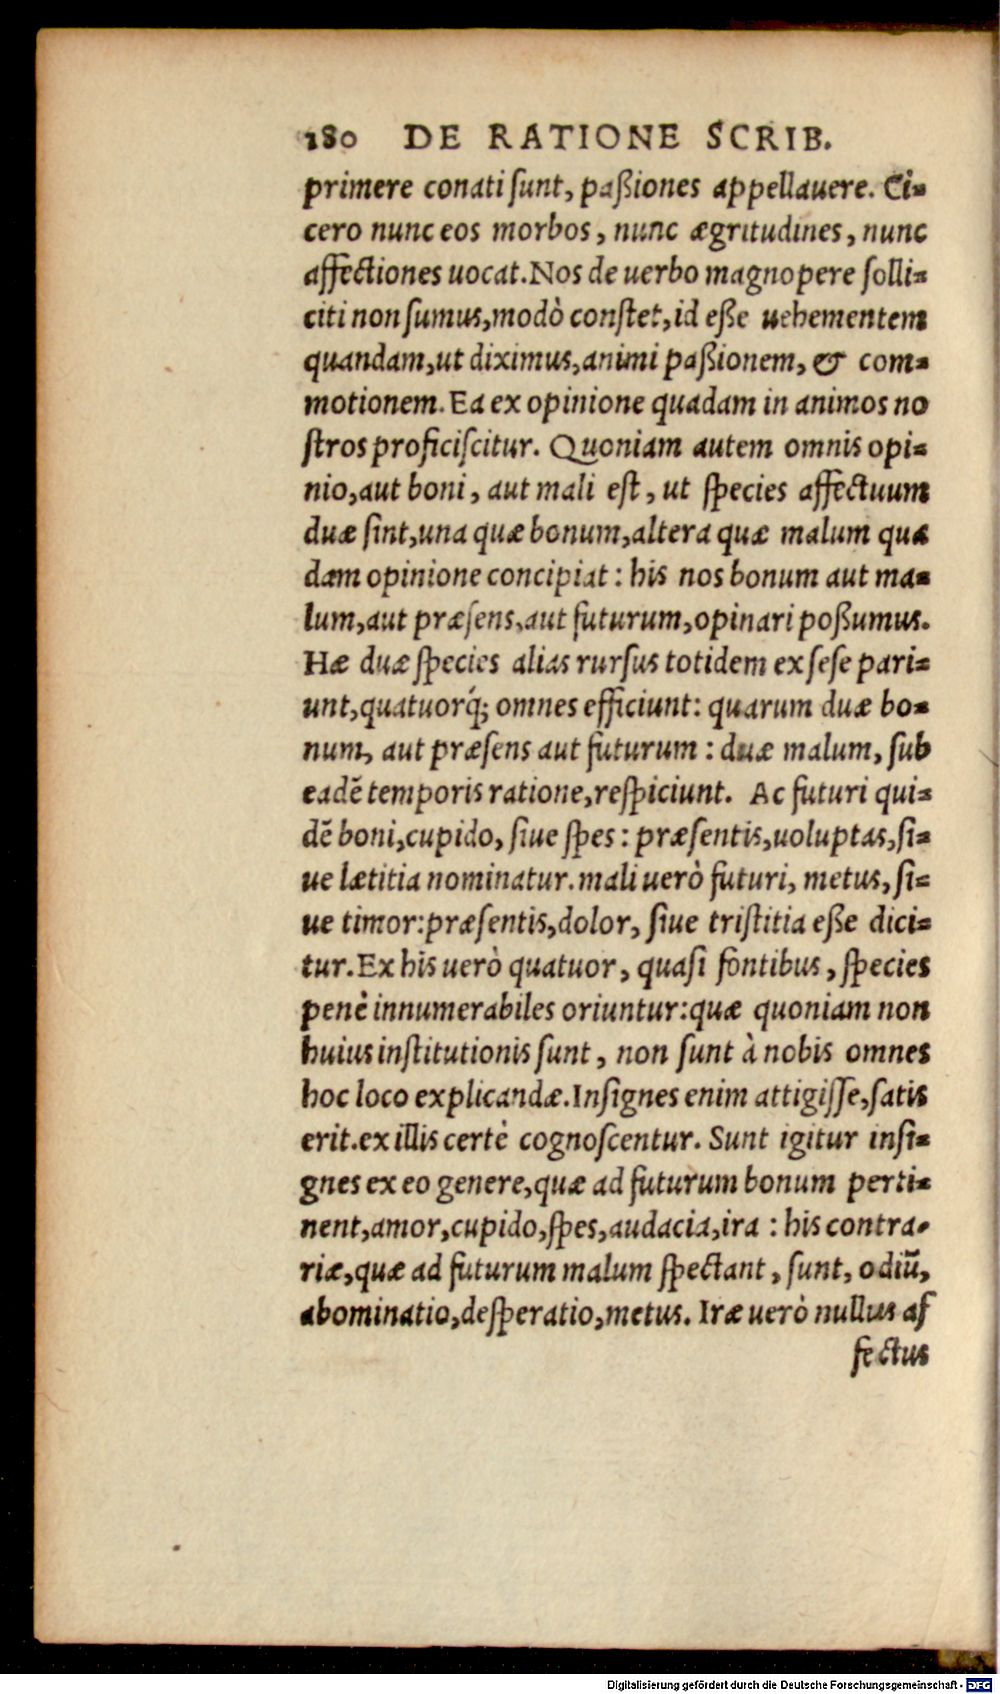 180 DE RATIONE SCRIB.
primere conati sunt, paßiones appellauere. Ci-
cero nunc eos morbos, nunc ægritudines, nunc
affectiones uocat. Nos de uerbo magnopere solli-
citi non sumus, modò constet, id eße uehementem
quandam, ut diximus, animi paßionem, & com-
motionem. Ea ex opinione quadam in animos no
stros proficiscitur. Quoniam autem omnis opi-
nio, aut boni, aut mali est, ut species affectuum
duæ sint, una quæ bonum, altera quæ malum qua
dam opinione concipiat: his nos bonum aut ma-
lum, aut præsens, aut futurum, opinari poßumus.
Hæ duæ species alias rursus totidem ex sese pari-
unt, quatuorq́; omnes efficiunt: quarum duæ bo-
num, aut præsens aut futurum: duæ malum, sub
eadē temporis ratione, respiciunt. Ac futuri qui-
dē boni, cupido, siue spes: præsentis, uoluptas, si-
ue lætitia nominatur. mali uerò futuri, metus, si-
ue timor: præsentis, dolor, siue tristitia eße dici-
tur. Ex his uerò quatuor, quasi fontibus, species
penè innumerabiles oriuntur: quæ quoniam non
huius institutionis sunt, non sunt à nobis omnes
hoc loco explicandæ. Insignes enim attigisse, satis
erit. ex illis certè cognoscentur. Sunt igitur insi-
gnes ex eo genere, quæ ad futurum bonum perti-
nent, amor, cupido, spes, audacia, ira: his contra-
riæ, quæ ad futurum malum spectant, sunt, odiū,
abominatio, desperatio, metus. Iræ uerò nullus af
fectus
Digitalisierung gefördert durch die Deutsche Forschungsgemeinschaft - DFG